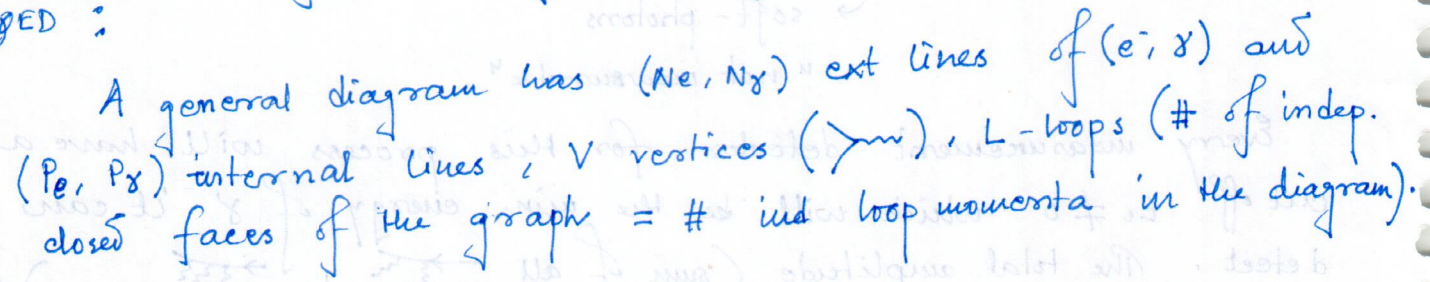 QED :
A general diagram has (Ne, Nγ) ext lines of (e⁻, γ) and
(Pe, Pγ) internal lines, V vertices ( ), L-loops (# of indep.
closed faces of the graph = # ind loop momenta in the diagram).